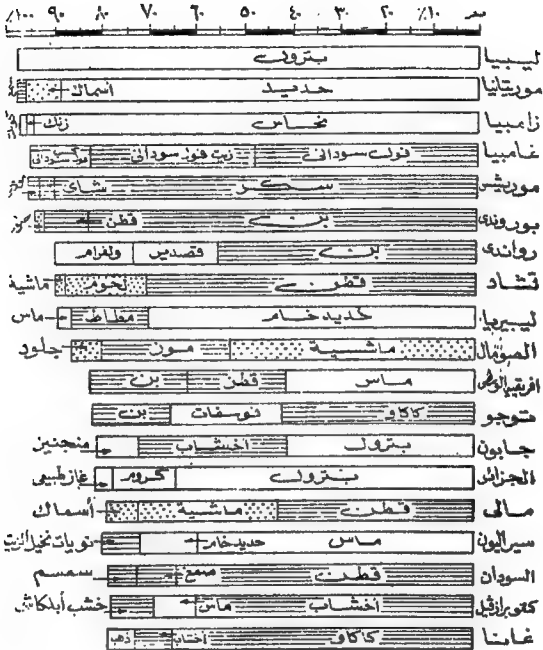 صفر ١٠٪ ٢٠ ٣٠ ٤٠ ٥٠ ٦٠ ٧٠ ٨٠ ٩٠ ١٠٠٪
ليبيا بترول
موريتانيا حديد أسماك
زامبيا نحاس زنك
غامبيا فول سودانى زيت فول سودانى
موريشس سكر شاى
بوروندى بن قطن
رواندى بن قصدير ولفرام
تشاد قطن لحوم ماشية
ليبريا حديد خام مطاط ماس
الصومال ماشية موز جلود
افريقيا الوسطى ماس قطن بن
توجو كاكاو فوسفات بن
جابون بترول أخشاب منجنيز
الجزائر بترول كروم غاز طبيعى
مالى قطن ماشية أسماك
سيراليون ماس حديد خام نويات نخيل الزيت
السودان قطن صمغ سمسم
كنغو برازفيل أخشاب ماس خشب أبلكاش
غانا كاكاو أخشاب ذهب